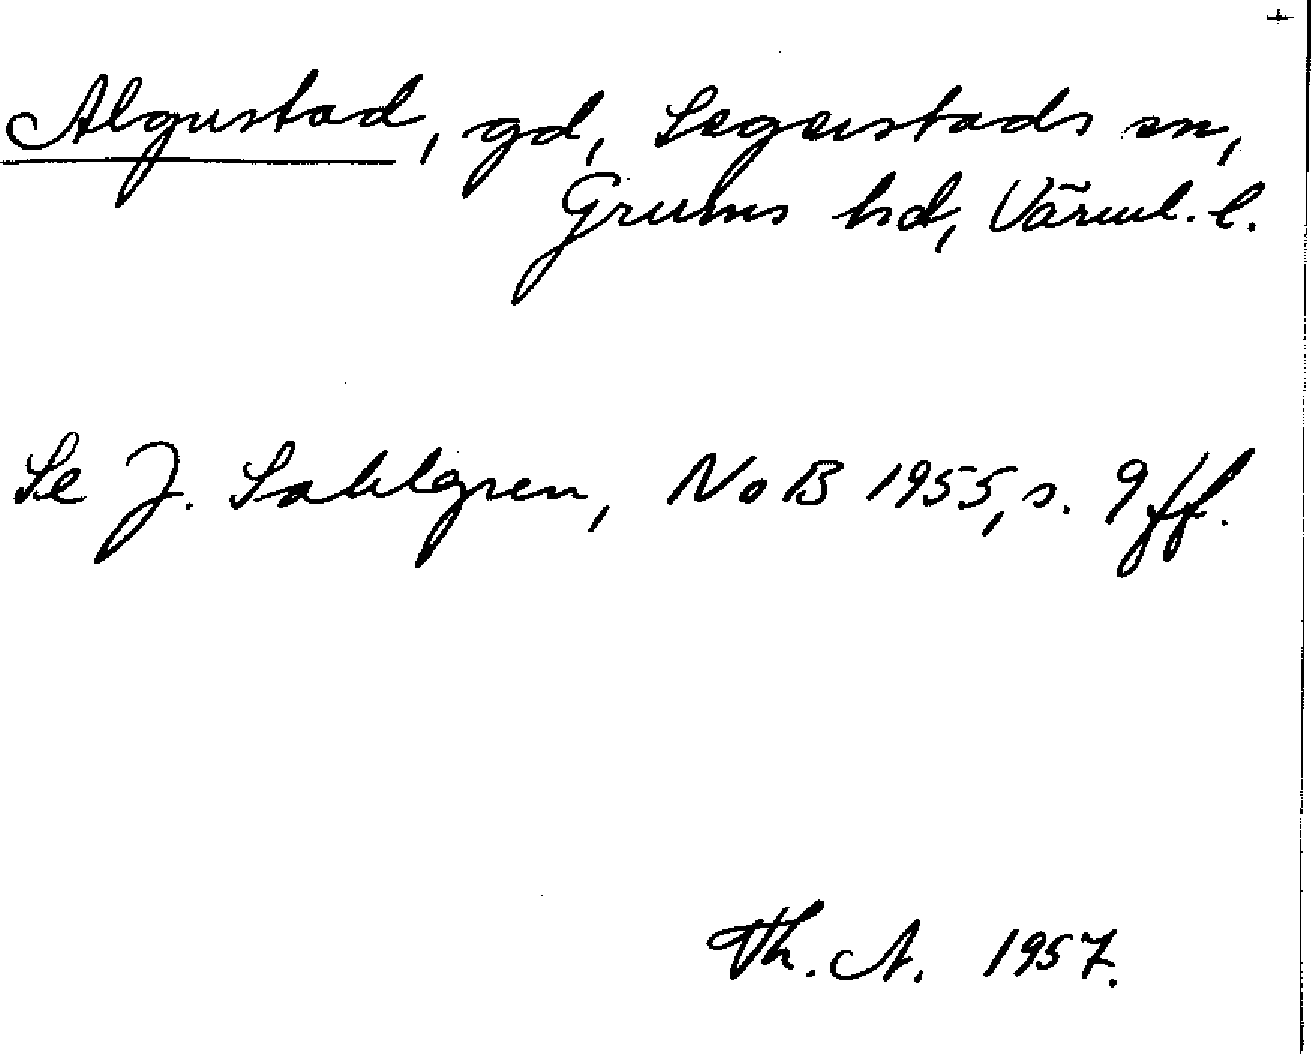 +
Algustad, gd, Segerstads sn,
Grums hd, Värml. l.
Se J. Sahlgren, NoB 1955, s. 9 ff.
Th. A. 1957.